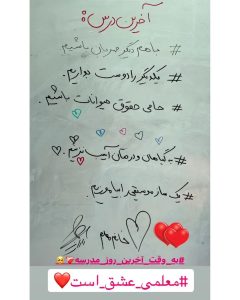 آخرین درس:
# باهم دیگر مهربان باشیم
# یکدیگر را دوست بداریم.
# حامی حقوق حیوانات باشیم.
# به گیاهان و درختان آسیب نزنیم.
# یک ساز موسیقی را بیاموزیم.
خانم
#به_وقت_آخرین_روز_مدرسه
#معلمی_عشق_است